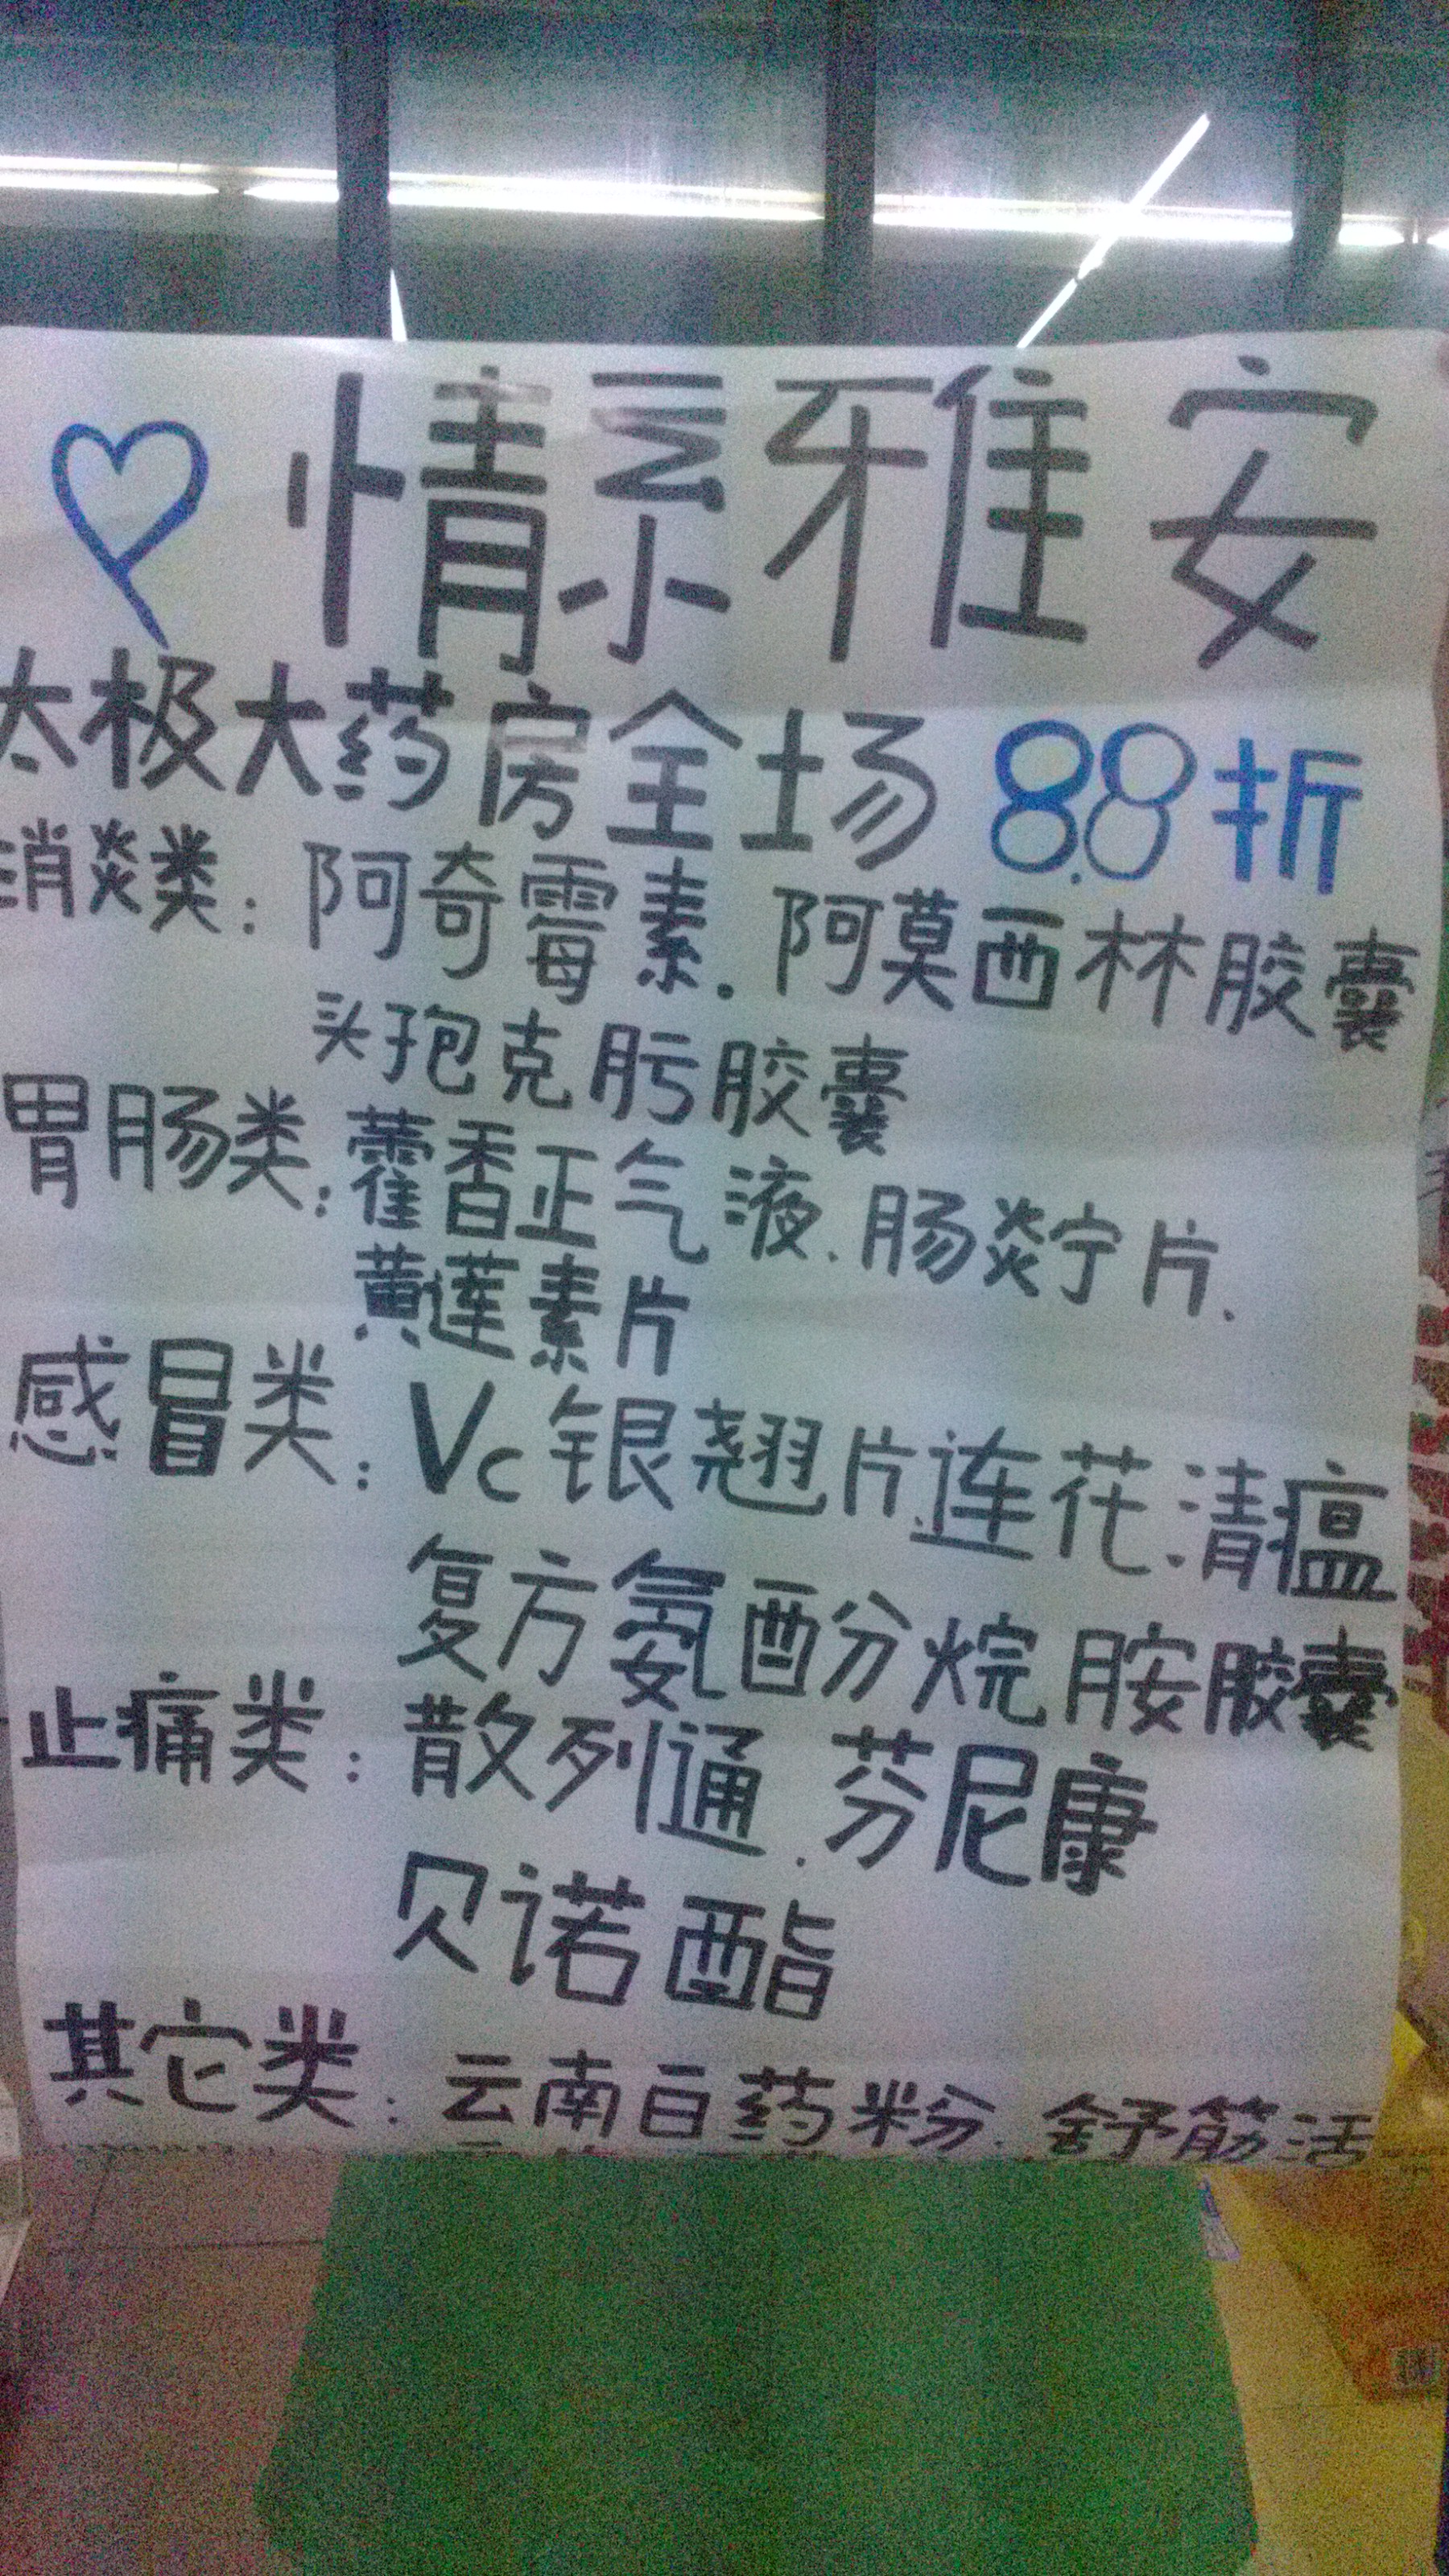 情系雅安
太极大药房全场8.8折
消炎类：阿奇霉素.阿莫西林胶囊
头孢克肟胶囊
胃肠类：藿香正气液.肠炎宁片.
黄莲素片
感冒类：Vc银翘片.连花.清瘟
复方氨酚烷胺胶囊
止痛类：散列通.芬尼康
贝诺酯
其它类：云南白药粉.舒筋活